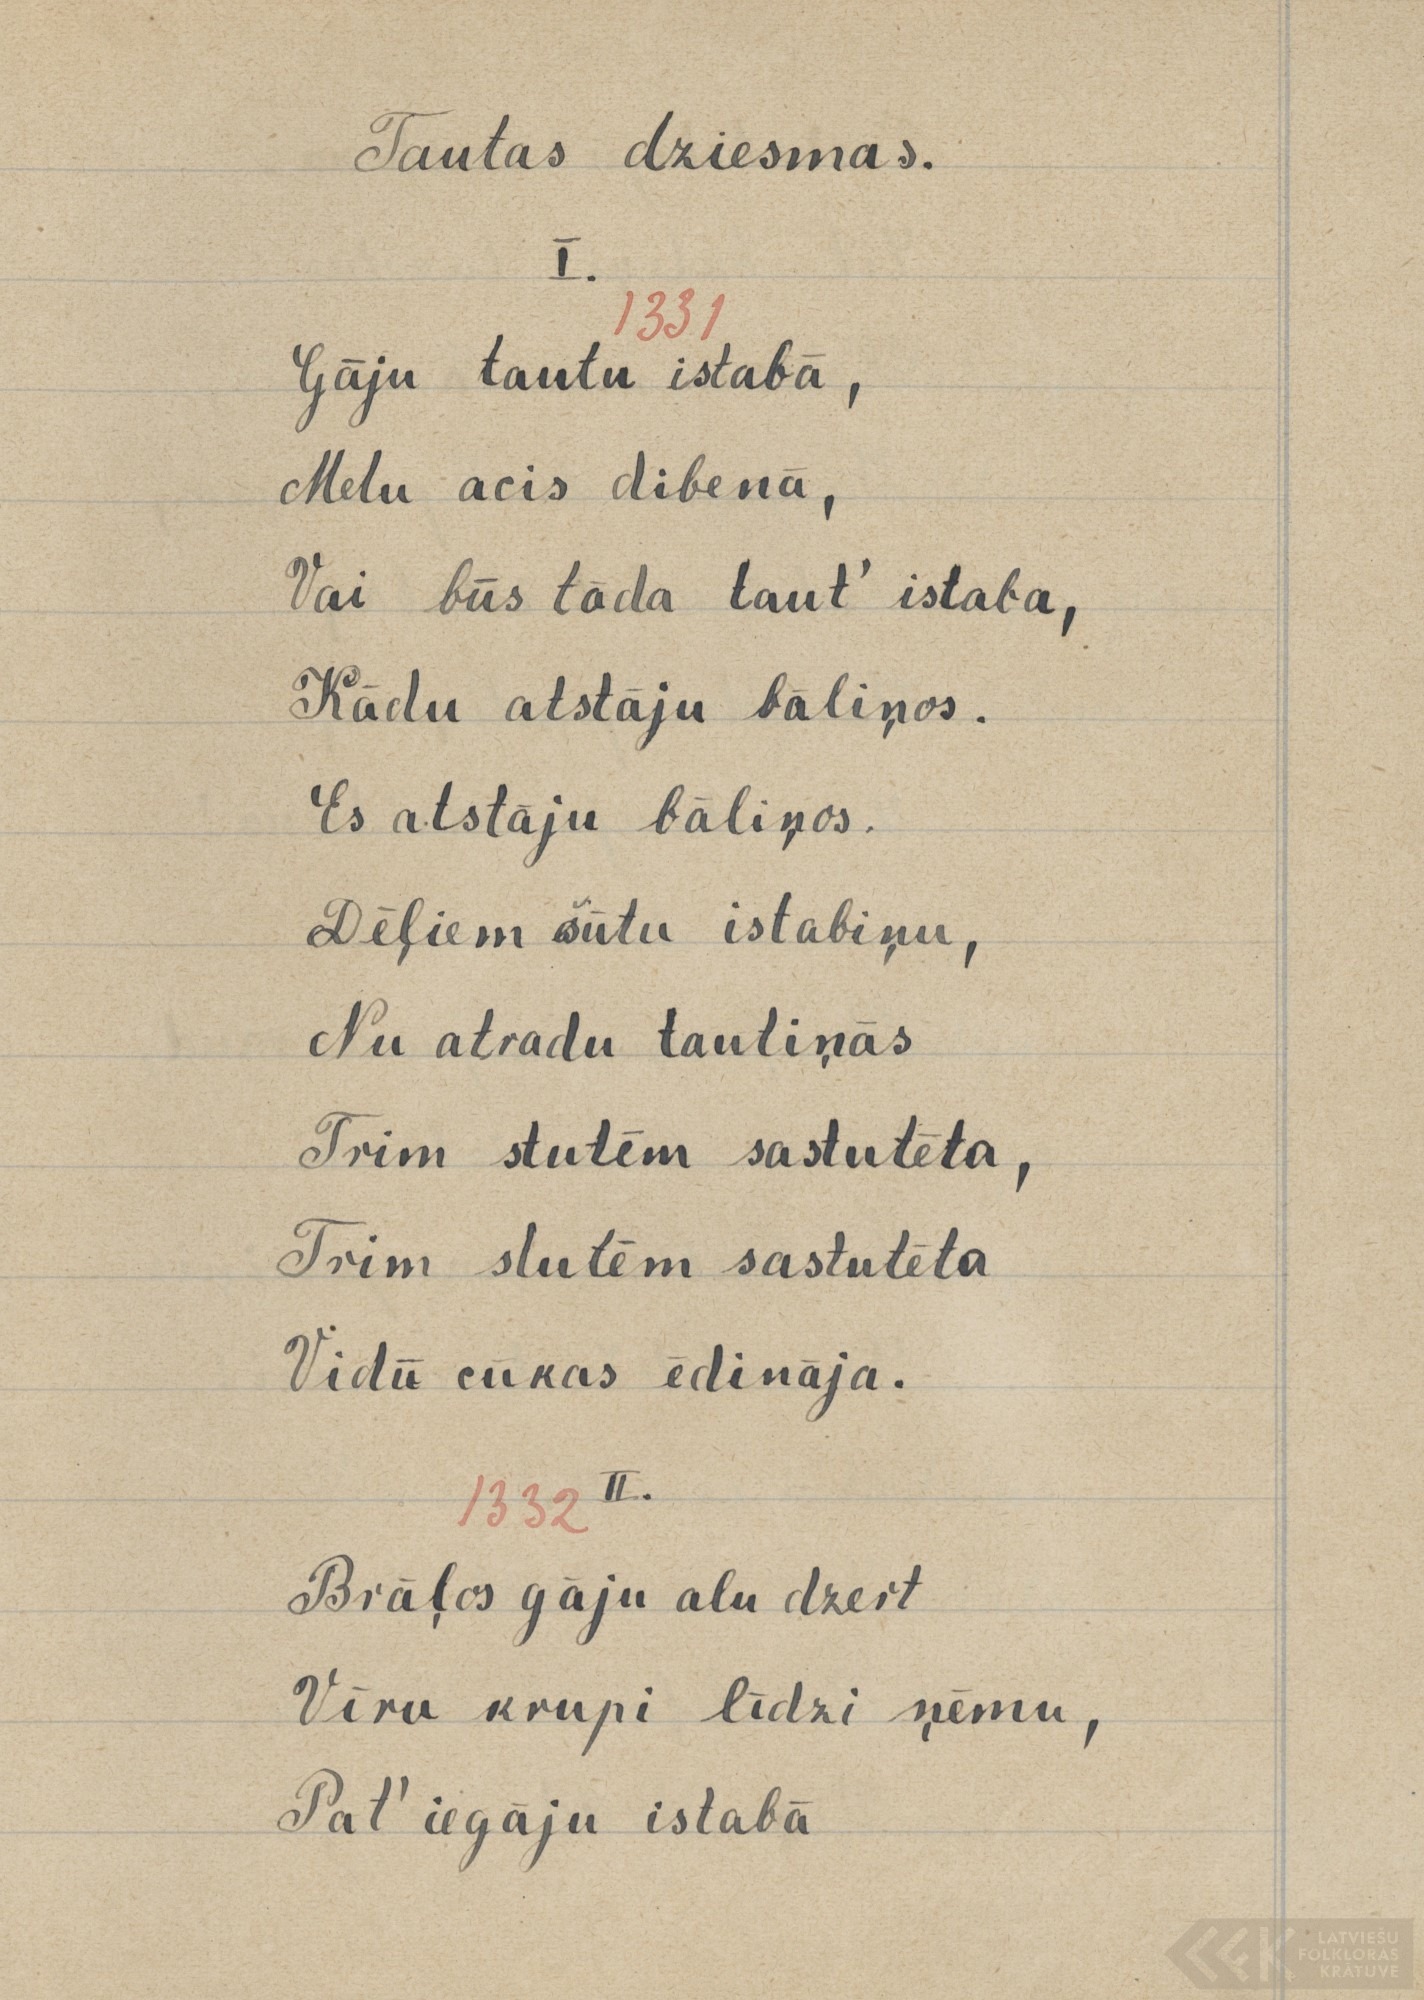 Tautas dziesmas.
I.
1331
Gāju tautu istabā,
Metu acis dibenā,
Vai būs tāda taut' istaba,
Kādu atstāju bāliņos.
Es atstāju bāliņos.
Dēļiem šūtu istabiņu,
Nu atradu tautiņās
Trim stutēm sastutēta,
Trim stutēm sastutēta
Vidū cūkas ēdināja.
1332 II.
Brāļos gāju alu dzert
Vīru krupi līdzi ņēmu,
Pat' iegāju istabā
LATVIEŠU
FOLKLORAS
KRĀTUVE